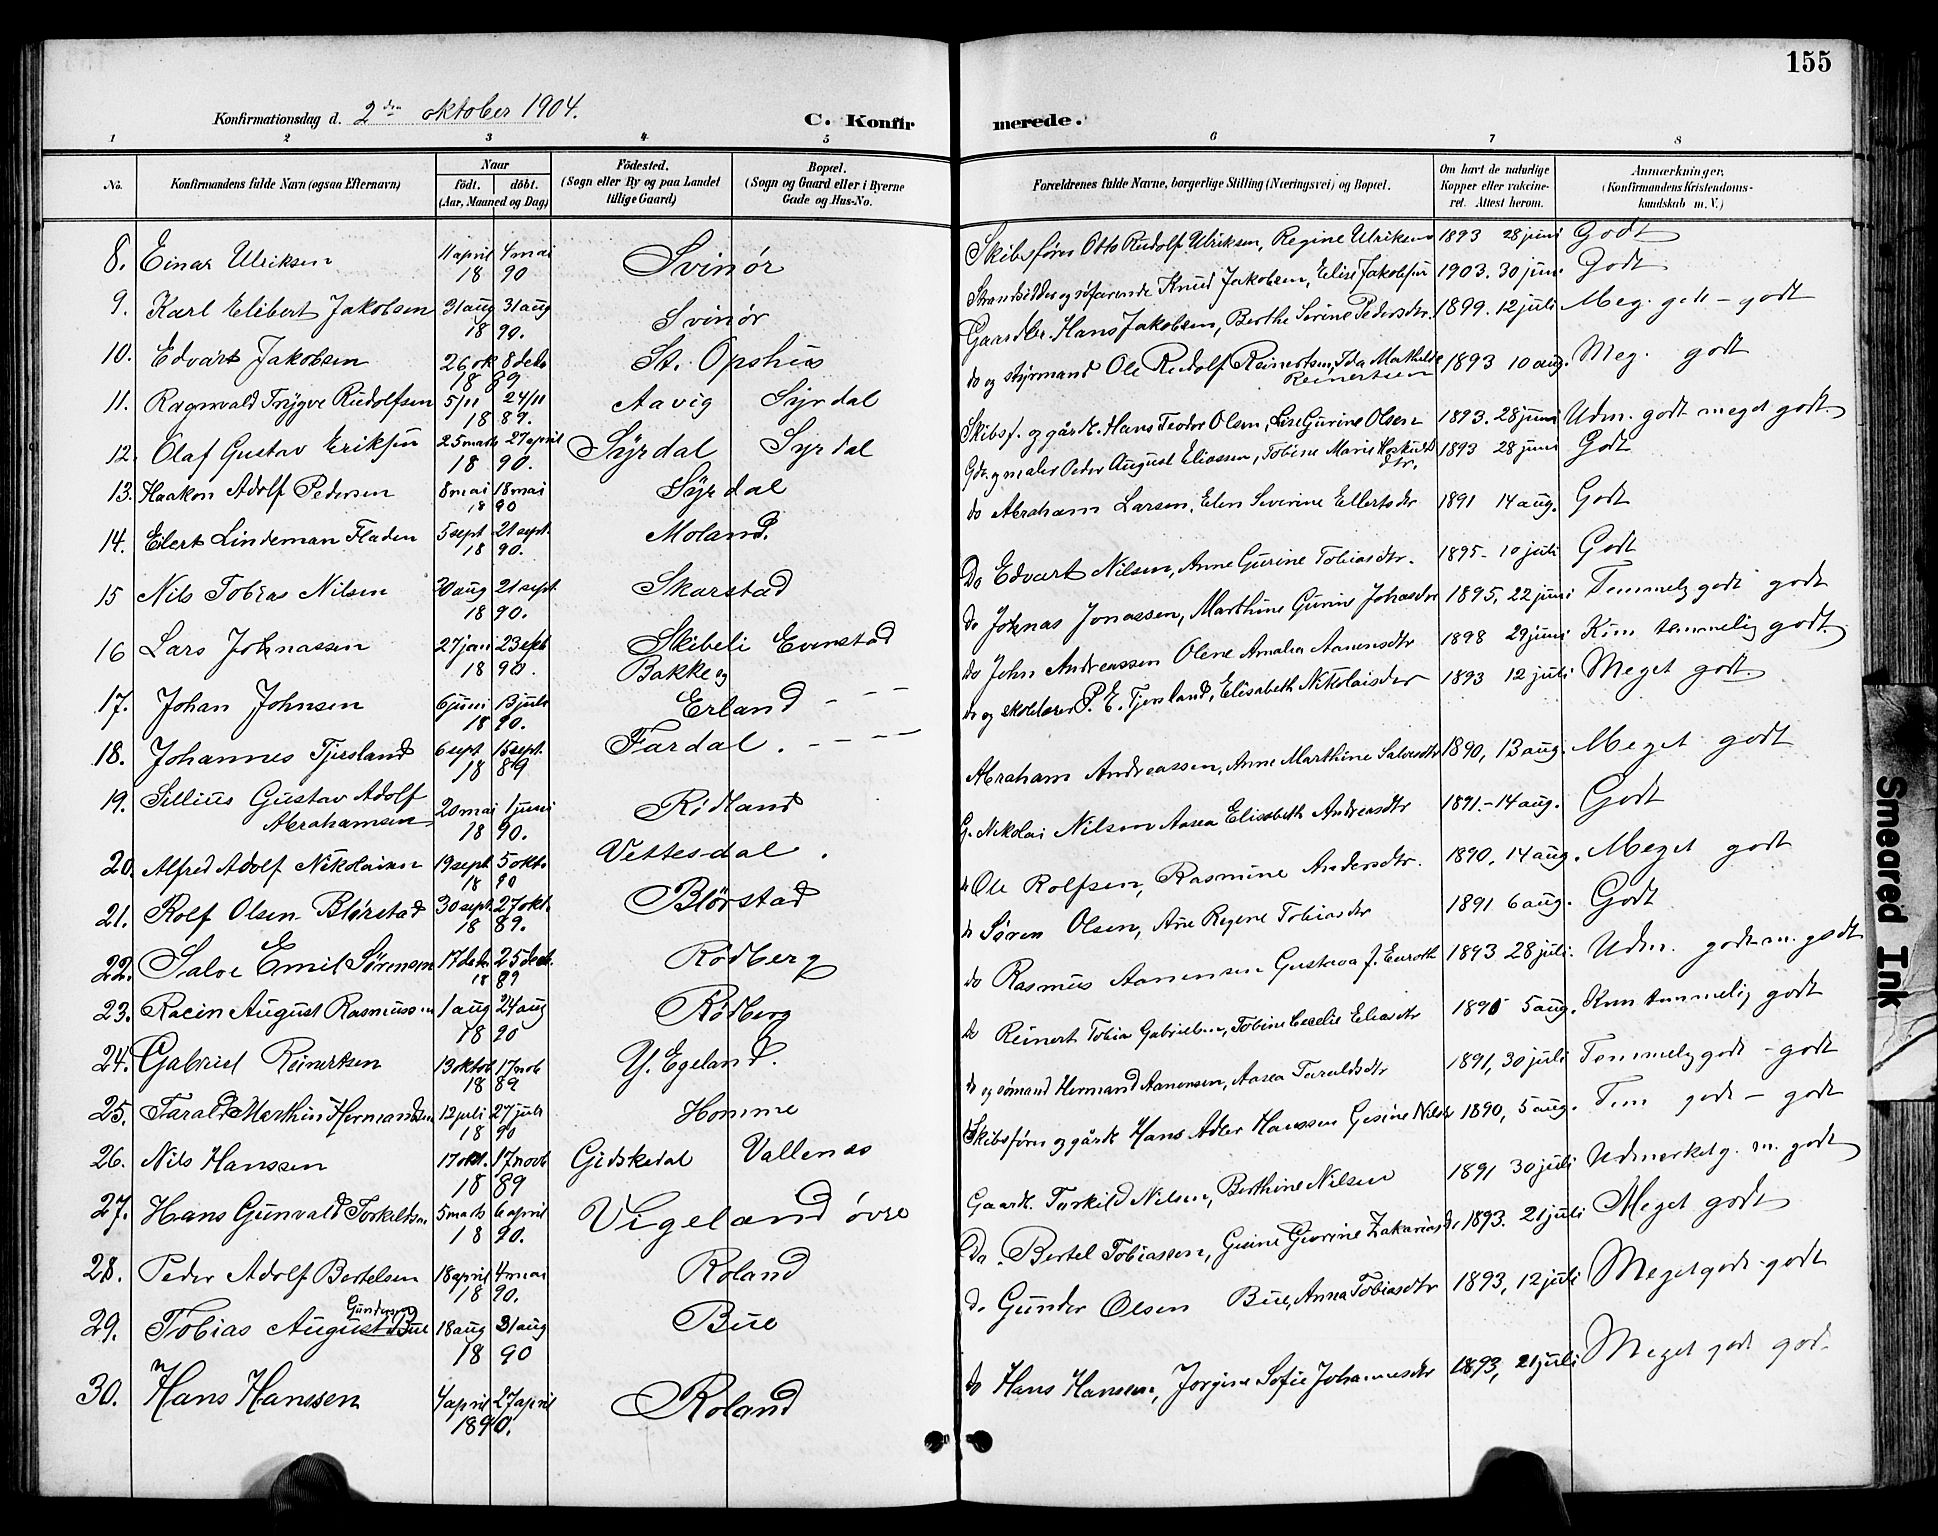 155
Konfirmationsdag d. 2den oktober 1904.
C. Konfirmerede.
1 2 3 4 5 6 7 8
No.
Konfirmandens fulde Navn (ogsaa Efternavn)
Naar
födt. döbt.
(Aar, Maaned og Dag)
Födested.
(Sogn eller By og paa Landet
tillige Gaard)
Bopæl.
(Sogn og Gaard eller i Byerne
Gade og Hus-No.
Forældrenes fulde Navne, borgerlige Stilling (Næringsvei) og Bopæl.
Om havt de naturlige
Kopper eller vakcine-
ret. Attest herom.
Anmærkninger.
(Konfirmandens Kristendoms-
kundskab m. V.)
8. Einar Ulriksen 11 april 4 mai 18 90 Svinör Skibsförer Otto Rudolf Ulriksen, Regine Ulriksen 1893 28 juni Godt
9. Karl Elibert Jakobsen 31 aug 31 aug 18 90. Svinör Strandsidder og söfarende Knud Jakobsen, Elise Jakobsen 1903. 30 juni Godt
10. Edvart Jakobsen 26 ok 8 deb 18 89 St. Opshus Gaardbr. Hans Jakobsen, Berthe Serine Pedersdtr. 1899. 12 juli Meg. godt - godt
11. Ragnvald Trygve Rudolfsen 5/11 24/11 18 89. Aavig Syrdal do og styrmand Ole Rudolf Reinertsen, Ida Mathilde Reinertsen 1893 10 aug. Meg. godt
12. Olaf Gustav Eriksen 25 marts 27 april 18 90. Syrdal Syrdal Skibsf. og gårdb. Hans Teodor Olsen, Lise Gurine Olsen 1893. 28 juni Udm. godt meget godt.
13. Haakon Adolf Pedersen 8 mai 18 mai 18 90 Syrdal Gdr. og maler Peder August Eliassen, Tobine Marie dtr. 1893 28 juni Godt
14. Eilert Lindeman Fladen 5 sept 21 sept. 18 90. Moland. do Abraham Larsen, Elen Severine Ellertsdtr 1891 14 aug. Godt
15 Nils Tobias Nilsen 30 aug 21 sept. 18 90. Skarstad Do Edvart Nilsen, Anne Gurine Tobiasdtr. 1895 - 10 juli Godt
16 Lars Johnassen 27 jan 23 feb 18 90. Skibeli Evenstad do Johnas Jonassen, Marthine Gurine Johasdtr 1895, 22 juni Temmelig godt godt
17. Johan Johnsen 6 juni 13 juli 18 90. Bakke og Erland - - - do John Andreassen Olene Amalia Aanensdtr 1898 29 juni Kun temmelig godt.
18. Johannes Tjersland 6 sept 15 sept. 18 89 Fardal. - - - do og skolelærer P. E. Tjersland, Elisabeth Nikolaisdtr 1893 12 juli Meget godt.
19. Sillius Gustav Adolf Abrahamsen 20 mai 1 juni 18 90. Rödland Abraham Andreassen, Anne Marthine Salvesdtr 1890, 13 aug. Meget godt
20. Alfred Adolf Nikolaisen 19 sept 5 okto 18 90 Vettesdal. G. Nikolai Nilsen Aasea Elisabeth Andreasdtr 1891. - 14 aug. Godt
21. Rolf Olsen Blörstad 30 sept. 27 okt. 18 89. Blörstad do Ole Rolfsen, Rasmine Andersdtr. 1890, 14 aug. Meget godt
22. Salve Emil Sörensen 17 deb. 25 deb. 18 89 Rödberg do Sören Olsen, Ane Regine Tobiasdtr 1891 6 aug. Godt
23. Racin August Rasmussen 1 aug 24 aug 18 90 Rödberg do Rasmus Aanensen Gustava J. 1893 28 juli. Udm. godt m. godt
24. Gabriel Reinertsen 13 oktob 17 nob 18 89 Y. Egeland. do Reinert Tobias Gabrielsen, Tobine Cecelie Eliasdtr 1890 5 aug. Kun temmelig godt
25. Tarald Merthin Hermandsen 12 juli 27 juli 18 90 Homme do og sömand Hermand Aanensen, Aasea Taraldsdtr 1891, 30 juli Temmelig godt - godt
26. Nils Hanssen 17 okt. 17 novb 18 89 Gidskedal Vallenes Skibsförer og gårdb Hans Adler Hanssen Gesine Nilsdr 1890, 5 aug. Tem godt - godt
27. Hans Gunvald Torkildsen 5 marts 6 april 18 90. Vigeland övre Gaardb. Torkild Nilsen, Berthine Nilsen 1891 30 juli Udmerket g. m. godt
28. Peder Adolf Bertelsen 18 april 4 mai 18 90. Roland Do. Bertel Tobiassen, Gesine Giorine Zakariasdr. 1893. 21 juli Meget godt
29. Tobias August Gundersen Bue 18 aug 31 aug 18 90 Bue do Gunder Olsen Bue, Anna Tobiasdtr 1893, 12 juli Meget godt - godt
30. Hans Hanssen 4 april 27 april 1890. Roland do Hans Hansen, Jorgine Sofie Johannesdtr 1893, 21 juli Meget godt god.
Smeared Ink